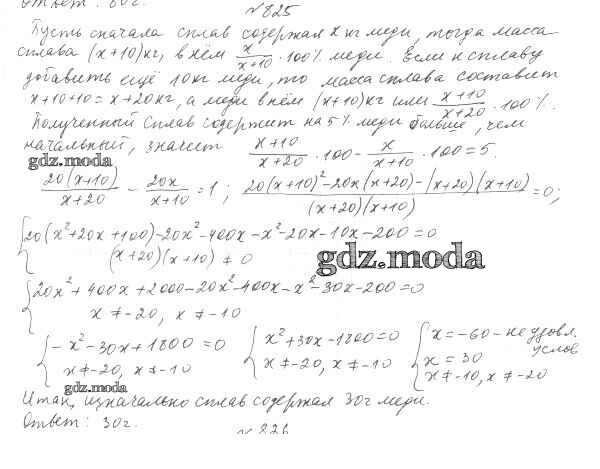 Ответ: 80г.
№825
Пусть сначала сплав содержал x кг меди, тогда масса
сплава (x+10) кг, в нём x/(x+10) · 100% меди. Если к сплаву
добавить ещё 10 кг меди, то масса сплава составит
x+10+10 = x+20 кг, а меди в нём (x+10) кг или (x+10)/(x+20) · 100%.
Полученный сплав содержит на 5% меди больше, чем
начальный, значит (x+10)/(x+20) · 100 - x/(x+10) · 100 = 5.
gdz.moda
20(x+10)/(x+20) - 20x/(x+10) = 1; (20(x+10)² - 20x(x+20) - (x+20)(x+10))/((x+20)(x+10)) = 0;
{20(x²+20x+100) - 20x² - 400x - x² - 20x - 10x - 200 = 0
(x+20)(x+10) ≠ 0
gdz.moda
{20x² + 400x + 2000 - 20x² - 400x - x² - 30x - 200 = 0
x ≠ -20, x ≠ -10
{-x² - 30x + 1800 = 0 {x² + 30x - 1800 = 0 {x = -60 - не удовл. услов
x ≠ -20, x ≠ -10 x ≠ -20, x ≠ -10 x = 30
x ≠ -10, x ≠ -20
gdz.moda
Итак, изначально сплав содержал 30г меди.
Ответ: 30г.
№826